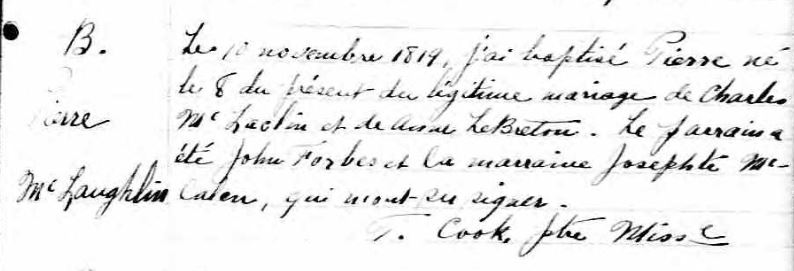 B.
Pierre
McLaughlin
Le 10 novembre 1819, j'ai baptisé Pierre né
le 8 du présent du légitime mariage de Charles
McLaclin et de Anne LeBreton. Le parrain a
été John Forbes et la marraine Josephte Mc-
Caien, qui n'ont su signer.
T. Cook, ptre Missre